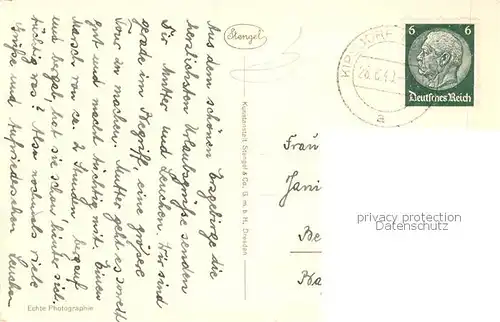 Aus dem schönen Erzgebirge die
herzlichsten Urlaubsgrüße senden
Dir Mutter und Lenchen. Wir sind
gerade im Begriff, eine größere
Tour zu machen. Mutter geht es soweit
gut und macht tüchtig mit. Einen
Marsch von ca. 2 Stunden bergauf
und bergab, hat sie schon hinter sich.
tüchtig was? Also nochmals viele
Grüße und Aufwiedersehen
Lenchen
Echte Photographie
Stengel
Kunstanstalt Stengel & Co. G. m. b. H., Dresden
6 6
Deutsches Reich
Frau
Jani
Be
privacy protection
Datenschutz